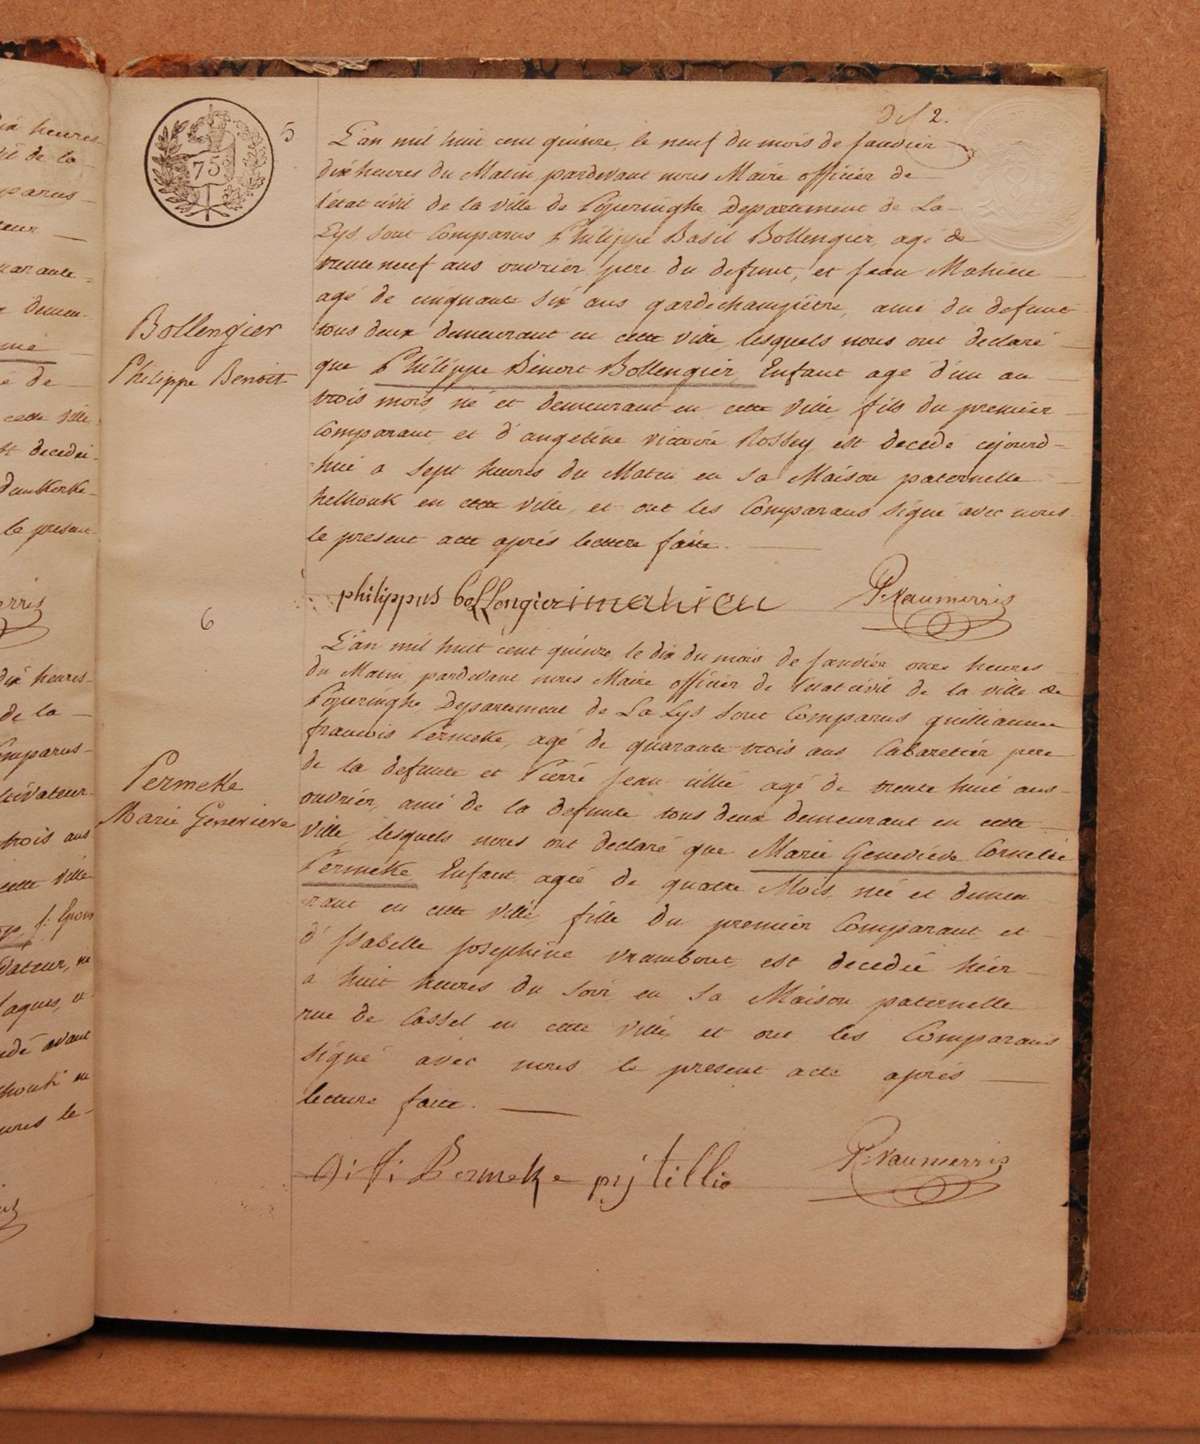 def 2.
75
5
L'an mil huit cent quinze, le neuf du mois de Janvier
dix heures du Matin pardevant nous Maire officier de
l'etat civil de la ville de Poperinghe Departement de La
Lys sont Comparus Philippe Basil Bollengier, agé de
trente neuf ans ouvrier, pere du defunt, et Jean Mahieu
agé de cinquante six ans gardechampètre, ami du defunt
tous deux demeurant en cette ville, lesquels nous ont declaré
que Philippe Benoit Bollengier, Enfant agé d'un an
trois mois né et demeurant en cette ville, fils du premier
Comparant et d'angeline victoire Rossey est decedé cejourd-
hui a sept heures du Matin en sa Maison paternelle
helhouk en cette ville, et ont les Comparans signé avec nous
le present acte après lecture faite.
Bollengier
Philippe Benoit
philippus bollengier imahieu P. Vanmerris
6
L'an mil huit cent quinze, le dix du mois de Janvier onze heures
du Matin pardevant nous Maire officier de l'etat civil de la ville de
Poperinghe Departement de La Lys sont Comparus guilliaume
francois Permeke, agé de quarante trois ans Cabaretier pere
de la defunte et Pierre Jean tillié agé de trente huit ans
ouvrier, ami de la defunte tous deux demeurant en cette
ville lesquels nous ont declaré que Marie Geneviève Cornelie
Permeke, Enfant agée de quatre Mois, née et demeu
rant en cette ville, fille du premier Comparant et
d'Isabelle Josephine Vrambout, est decedée hier
a huit heures du soir en sa Maison paternelle
rue de Cassel en cette ville, et ont les Comparans
signé avec nous le present acte après
lecture faite.
Permeke
Marie Genevieve
Permeke pij tillie P. Vanmerris
dix heures
de la
cette ville
le present
dix heures
de la
trois ans
cette ville
avant